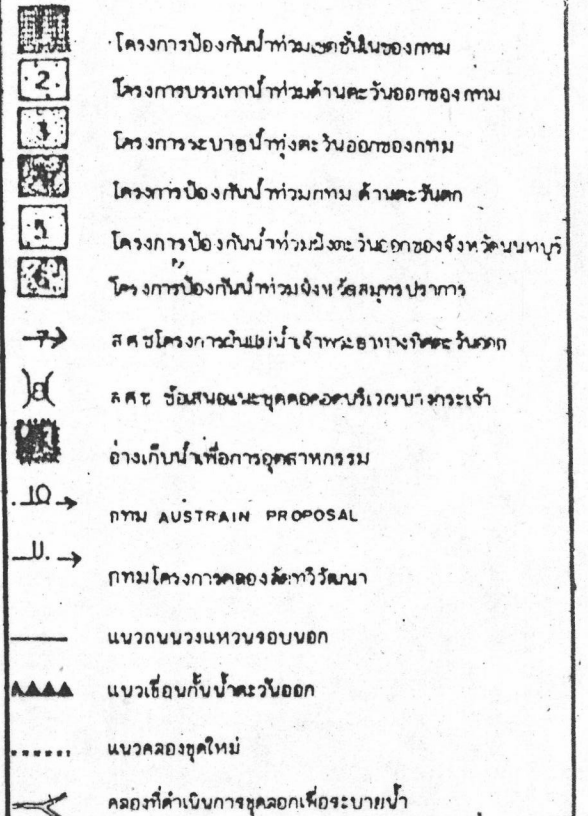 1 โครงการป้องกันน้ำท่วมเขตชั้นในของกทม
2 โครงการบรรเทาน้ำท่วมด้านตะวันออกของกทม
3 โครงการระบายน้ำทุ่งตะวันออกของกทม
4 โครงการป้องกันน้ำท่วมกทม ด้านตะวันตก
5 โครงการป้องกันน้ำท่วมฝั่งตะวันออกของจังหวัดนนทบุรี
6 โครงการป้องกันน้ำท่วมจังหวัดสมุทรปราการ
7 สศชโครงการผันแม่น้ำเจ้าพระยาทางทิศตะวันออก
8 สศช ข้อเสนอแนะขุดคอคอดบริเวณบางกระเจ้า
อ่างเก็บน้ำเพื่อการอุตสาหกรรม
10 กทม AUSTRAIN PROPOSAL
11 กทมโครงการคลองลัดทวีวัฒนา
แนวถนนวงแหวนรอบนอก
แนวเขื่อนกั้นน้ำตะวันออก
แนวคลองขุดใหม่
คลองที่ดำเนินการขุดลอกเพื่อระบายน้ำ